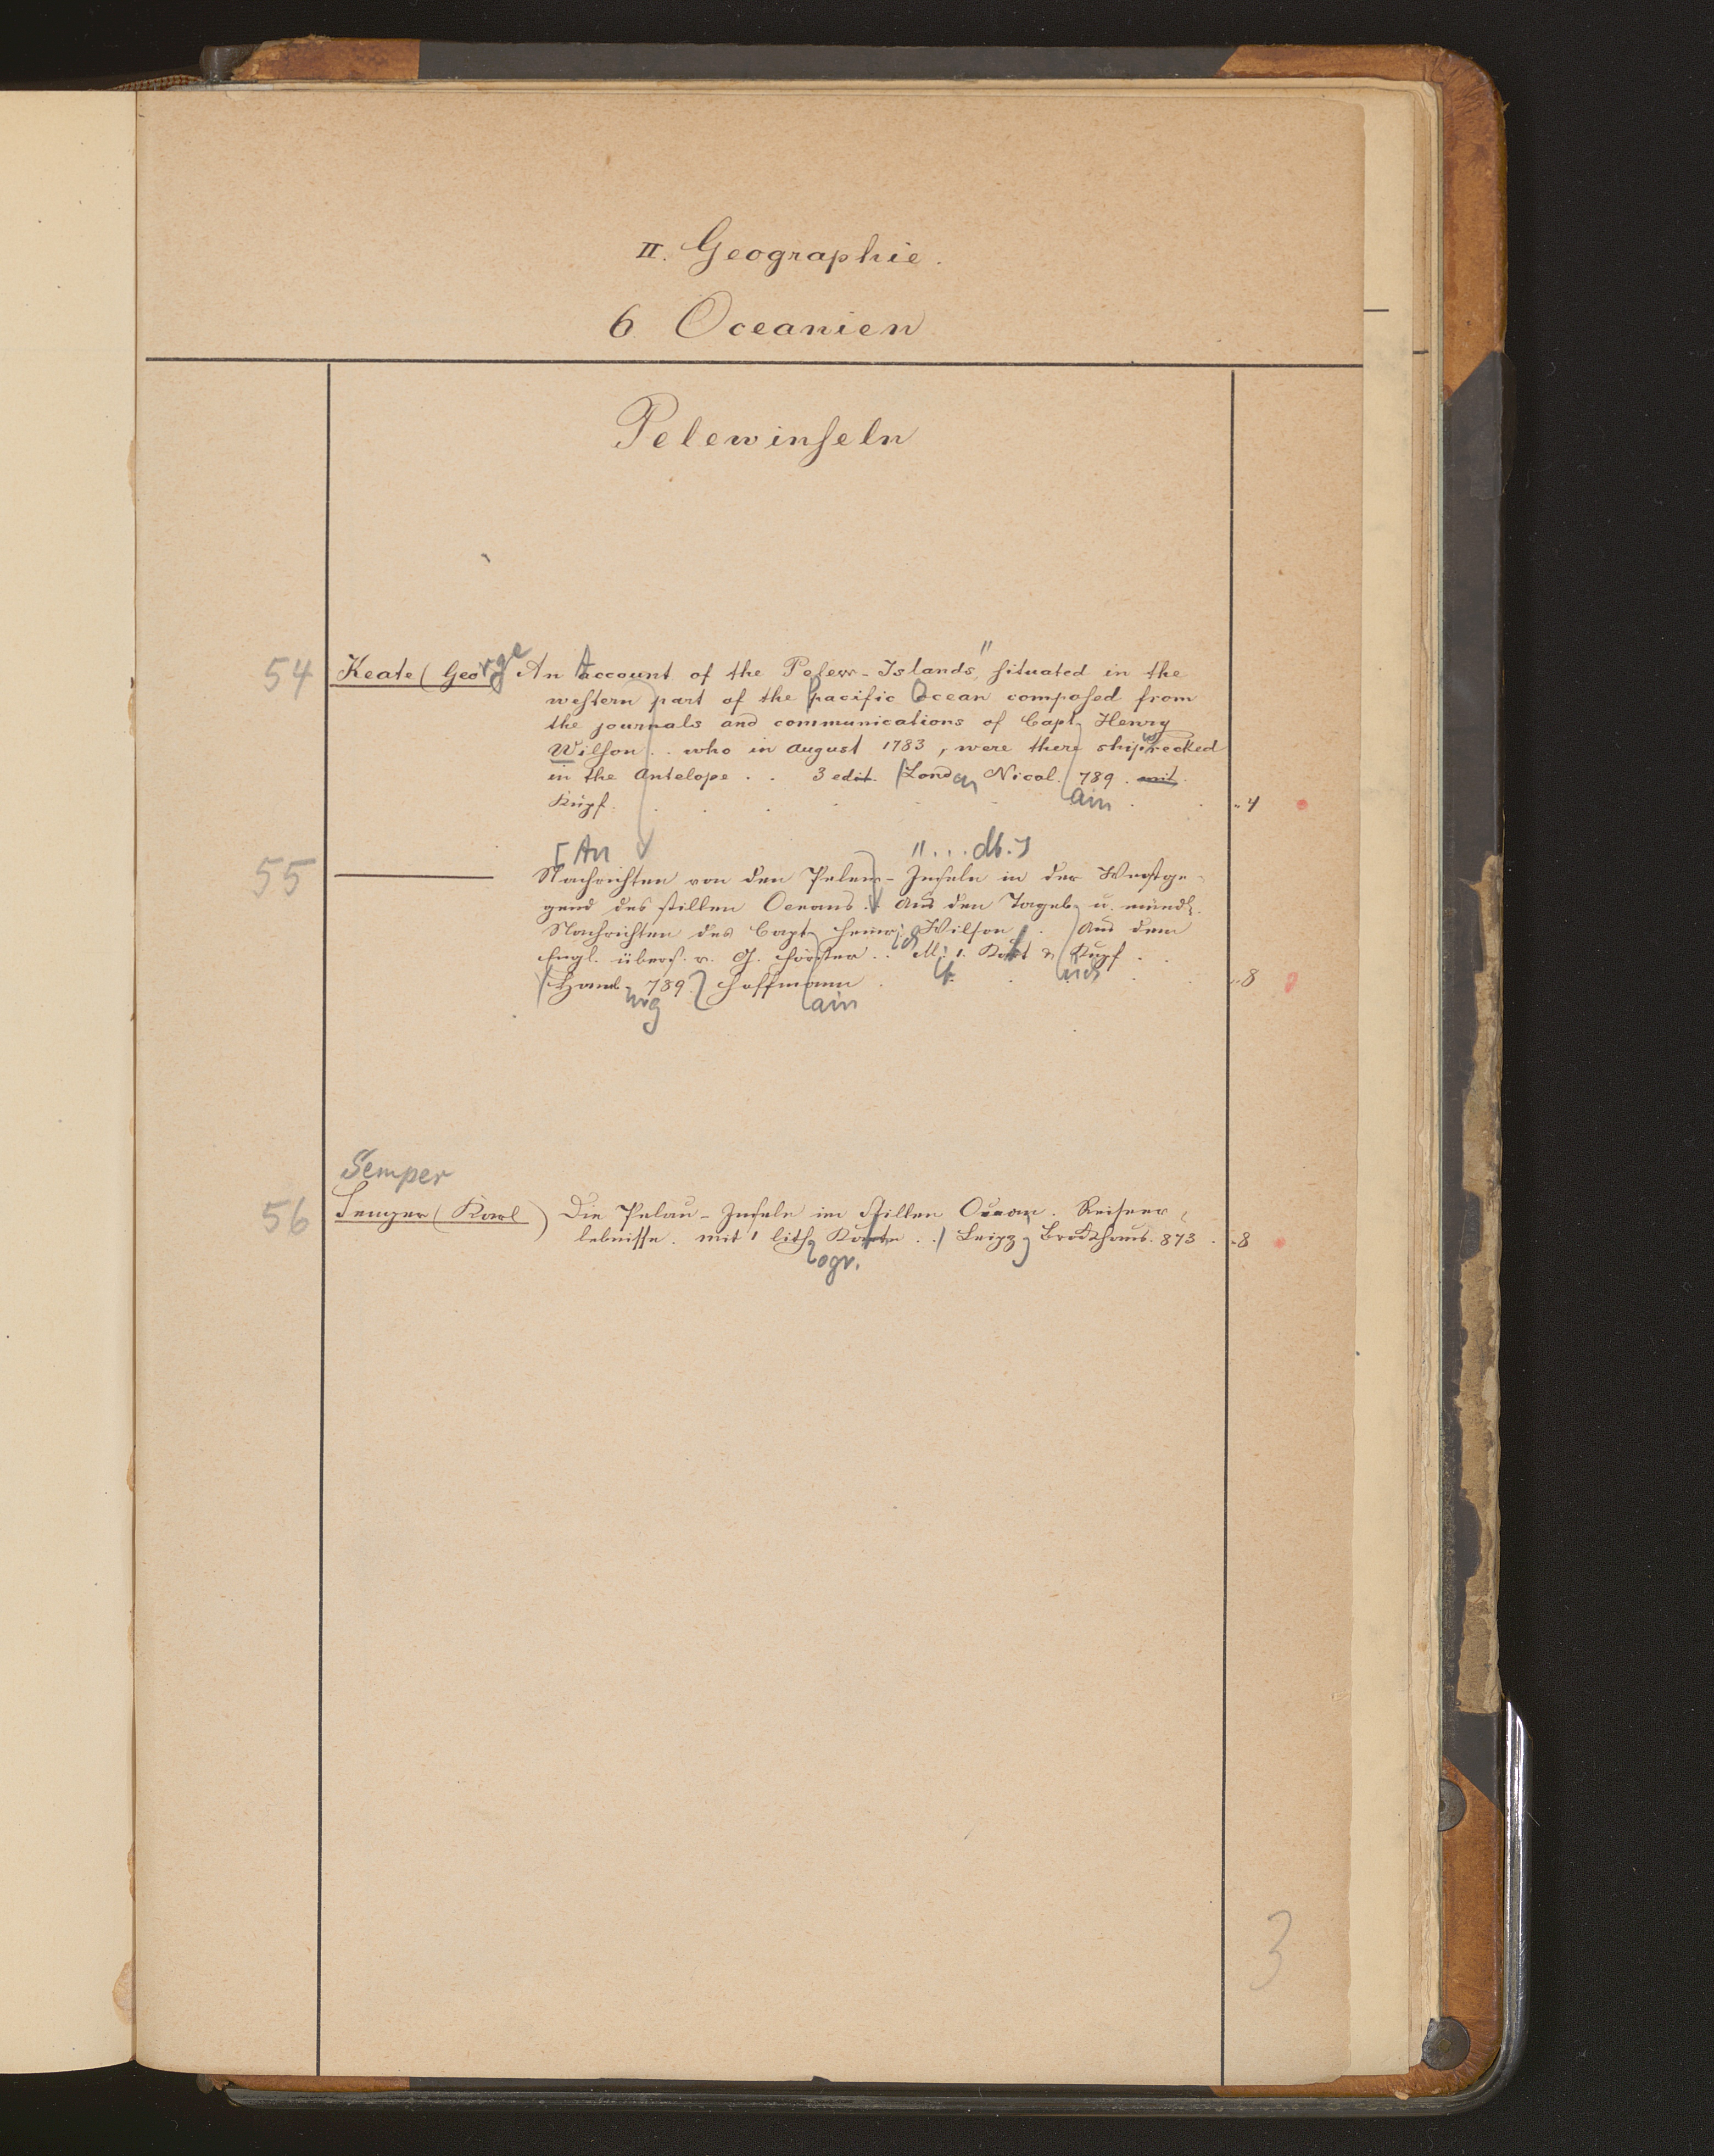 II. Geographie.
6 Oceanien
Pelewinseln
54 Keate (George An Account of the Pelew-Islands" situated in the
western part of the Pacific Ocean composed from
the journals and communications of Capt Henry
Wilson .. who in august 1783, were there shipwrecked
in the Antelope .. 3 edit. London Nicol. 789. mit
Kupf. ain "4
[An " ... db.]
55 ——— Nachrichten von den Pelew-Inseln in der Westge-
gend des stillen Oceans. Aus den Tageb u. mündl.
Nachrichten des Capt Heinrich Wilson. Aus dem
Engl. übers. v. G. Forster .. M. 1. Kart & Kupf ..
Hamb 789. Hoffmann "8
urg ain
Semper
56 Semper (Karl) Die Palau-Inseln im Stillen Ocean. Reiseer-
lebnisse. mit 1 lith Karte .. Leipz Brockhaus. 873. "8
ogr.
3